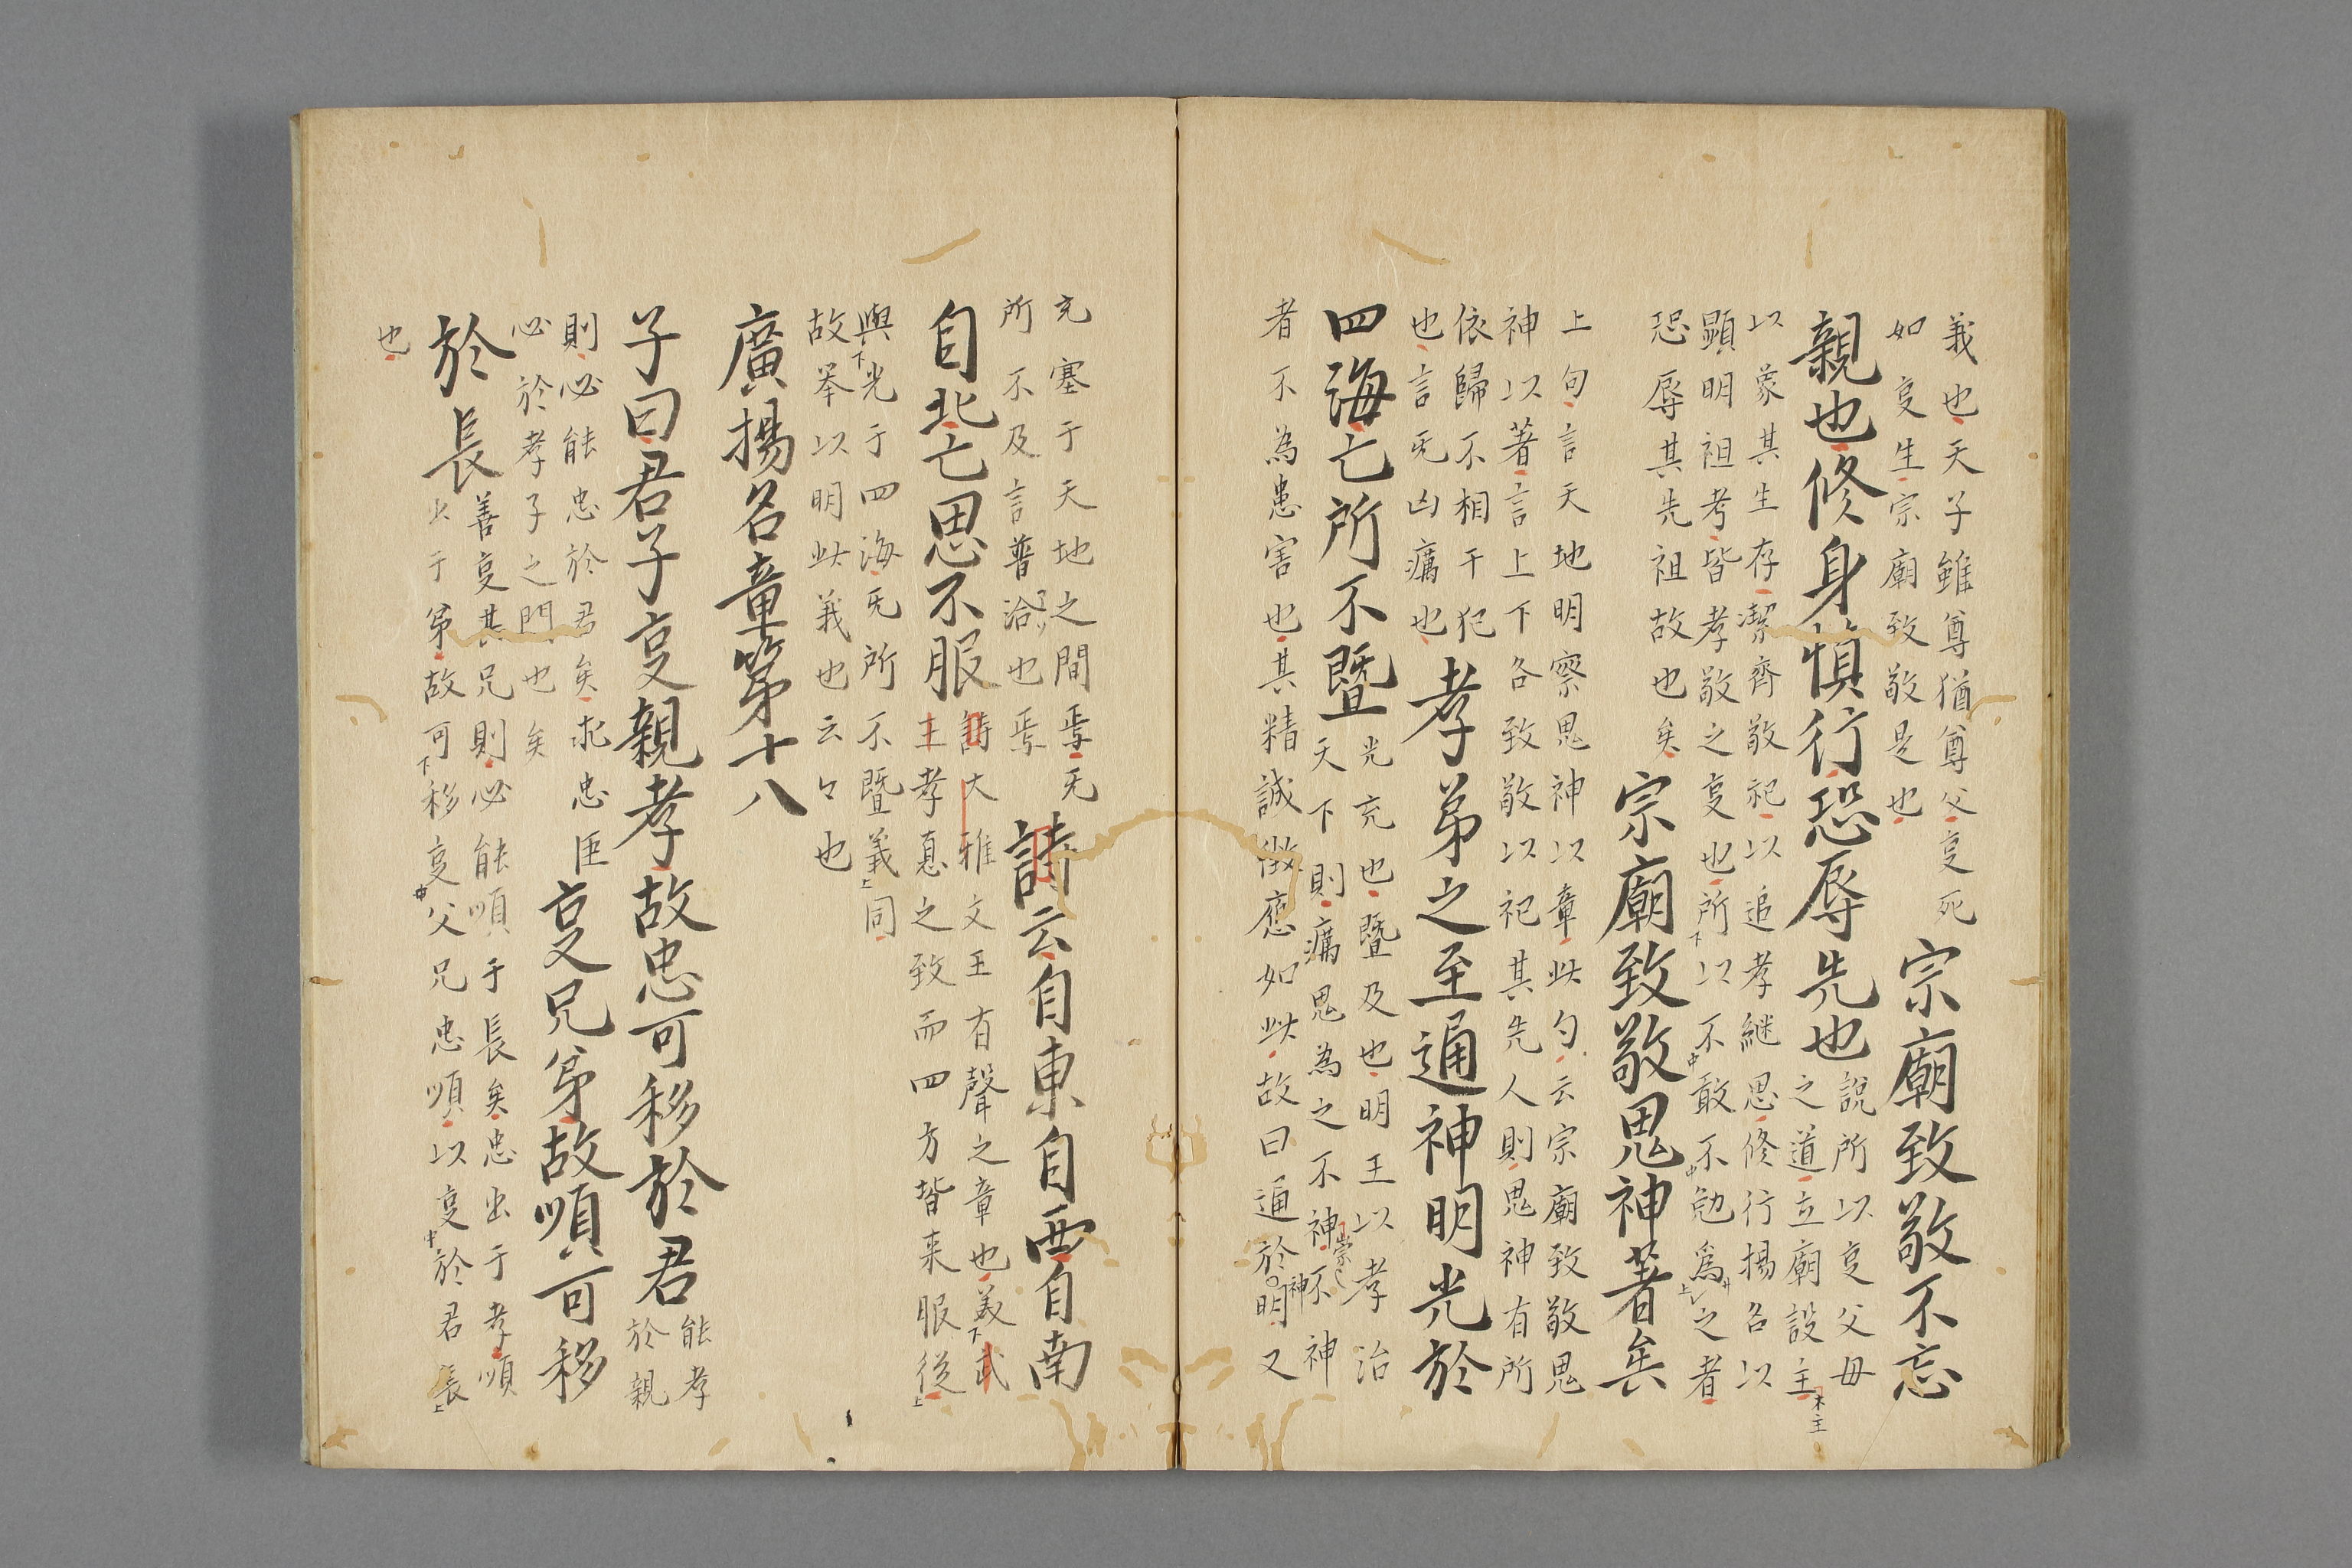 義也天子雖尊猶尊父叓死
如叓生宗廟致敬是也
宗廟致敬不忘
親也修身慎行恐辱先也
說所以叓父母
之道立廟設主
木主
以蒙其生存潔齊敬祀以追孝継思修行揚名以
顕明祖考皆孝敬之叓也所以不敢不勉為之者
恐辱其先祖故也矣
宗廟致敬鬼神著矣
上句言天地明察鬼神以章此勺云宗廟致敬鬼
神以著言上下各致敬以祀其先人則鬼神有所
依歸不相干犯
也言旡凶癘也
孝苐之至通神明光於
四海亡所不暨
光充也暨及也明王以孝治
天下則癘鬼為之不神不神
崇
者不為患害也其精誠徴應如此故曰通於神明又
充塞于天地之間焉旡
所不及言普洽也焉
詩云自東自西自南
自北亡思不服
詩大雅文王有聲之章也羙武
王孝惪之致而四方皆来服從
與光于四海旡所不暨義同
故举以明此義也云々也
廣揚名章第十八
子曰君子叓親孝故忠可移於君
能孝
於親
則必能忠於君矣求忠臣
必於孝子之門也矣
叓兄弟故順可移
於長
善叓其兄則必能順于長矣忠出于孝順
出于弟故可移叓父兄忠順以叓於君長
也